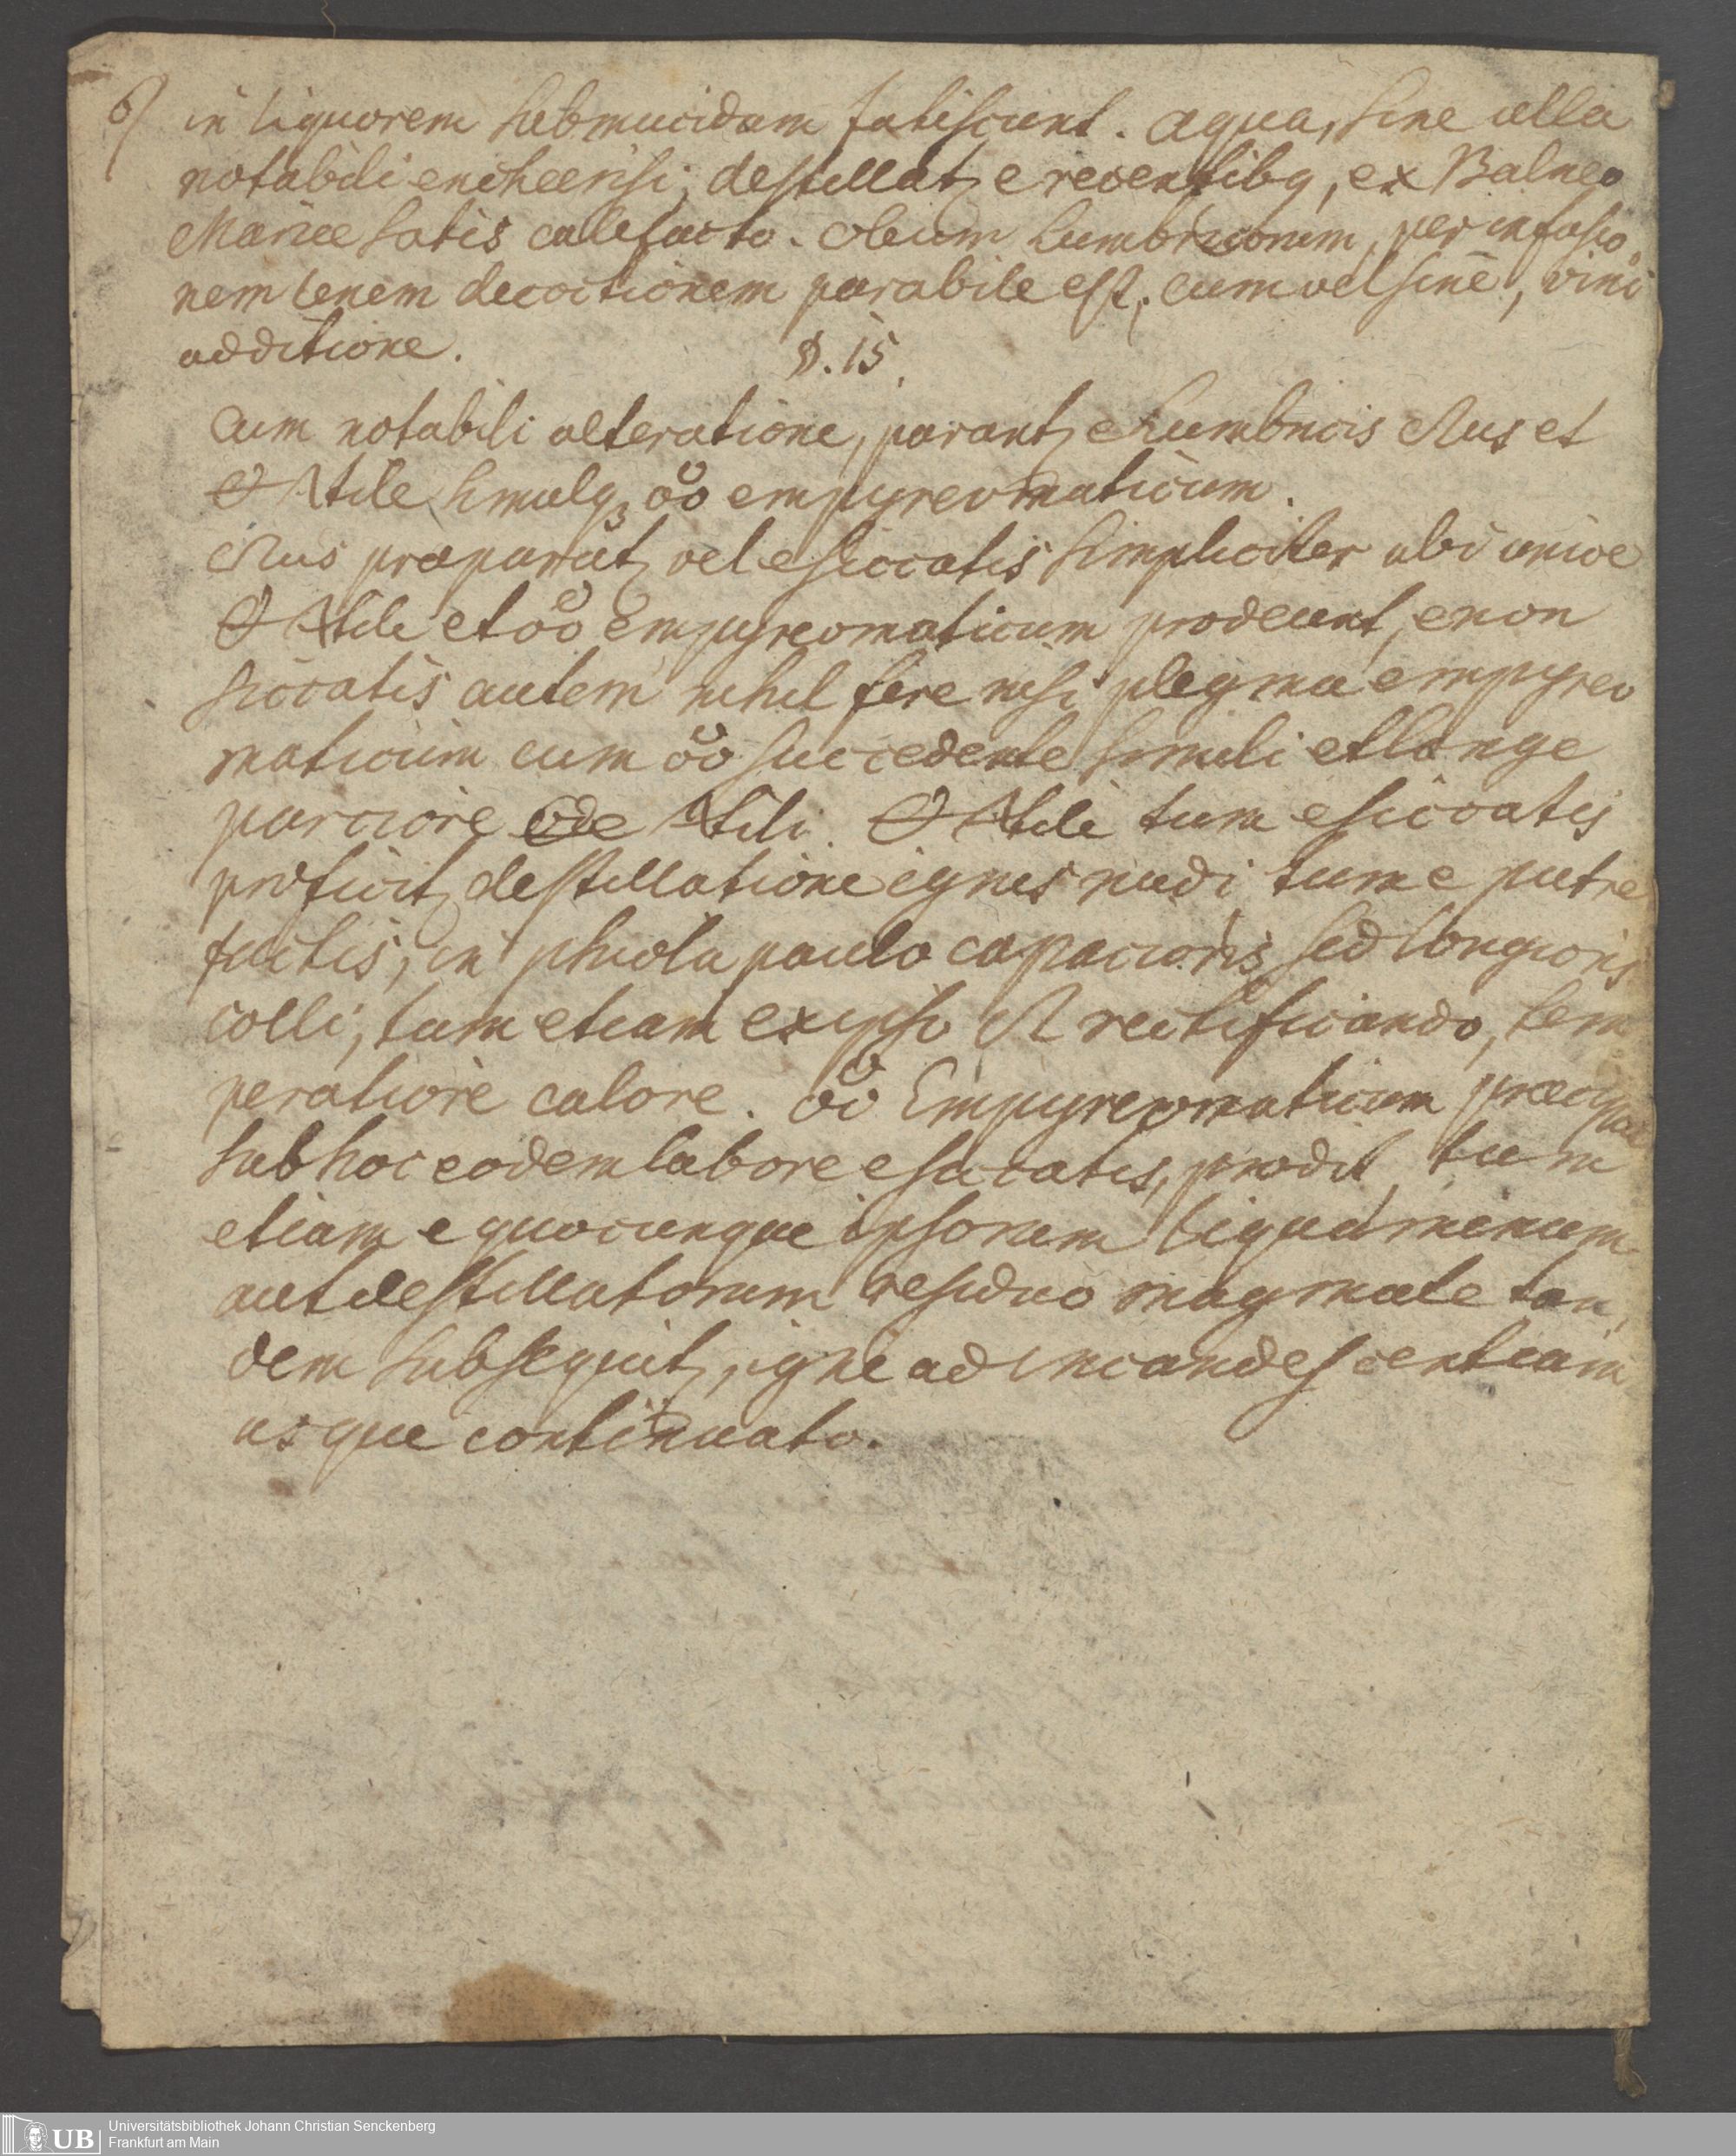 6)
in liquorem submucidum fatiscunt. aqua, sine ulla
notabili encheirisi, destillatʒ e recentibq, ex Balneo
Mariae satis calefacto. oleum Lumbricorum, per infusio
nem lenem decoctionem parabile est, cum vel sine, vini
additione.
§. 15.
Cum notabili alteratione, parantʒ e Lumbricis us et
🜔 tile simulqʒ empyreomaticum.
us praeparatʒ vel e siccatis simpliciter ubi unice
🜔 tile et empyreomaticum prodeunt, e non
siccatis autem nihil fere nisi plegma empyreo
maticum cum succedente simili et longe
parciore tili. 🜔 tile tum e siccatis
proficitʒ destillatione ignis nudi tum e putre
factis, in phiola paulo capacioris sed longioris
colli, tum etiam ex ipso rectificando, tem
peratiore calore. Empyreomaticum praecipue
sub hoc eodem labore e siccatis, prodit, tum
etiam e quocunque ipsorum liquaminum
aut destillatorum residuo magmate tan
dem subsequitʒ, igne ad incandescentiam
usque continuato.
UB
Universitätsbibliothek Johann Christian Senckenberg
Frankfurt am Main